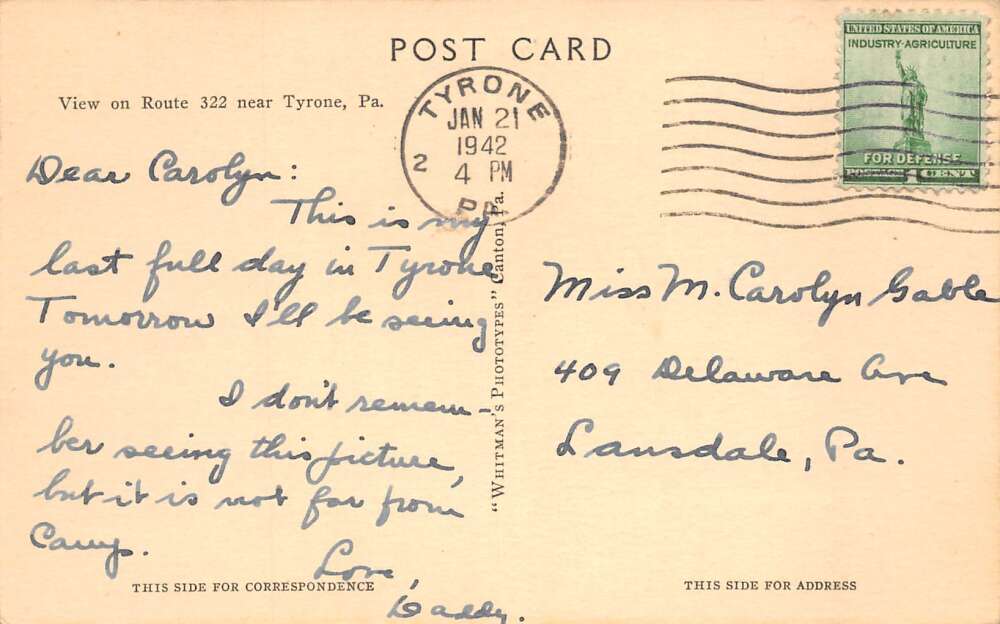 POST CARD
View on Route 322 near Tyrone, Pa.
TYRONE
JAN 21
1942
2
4 PM
PA.
UNITED STATES OF AMERICA
INDUSTRY-AGRICULTURE
FOR DEFENSE
POSTAGE 1 CENT
Dear Carolyn:
This is my
last full day in Tyrone
Tomorrow I'll be seeing
you.
I don't remem-
ber seeing this picture,
but it is not far from
Camp.
Love,
Daddy.
"WHITMAN'S PHOTOTYPES" Canton, Pa.
Miss M. Carolyn Gable
409 Delaware Ave
Lansdale, Pa.
THIS SIDE FOR CORRESPONDENCE
THIS SIDE FOR ADDRESS